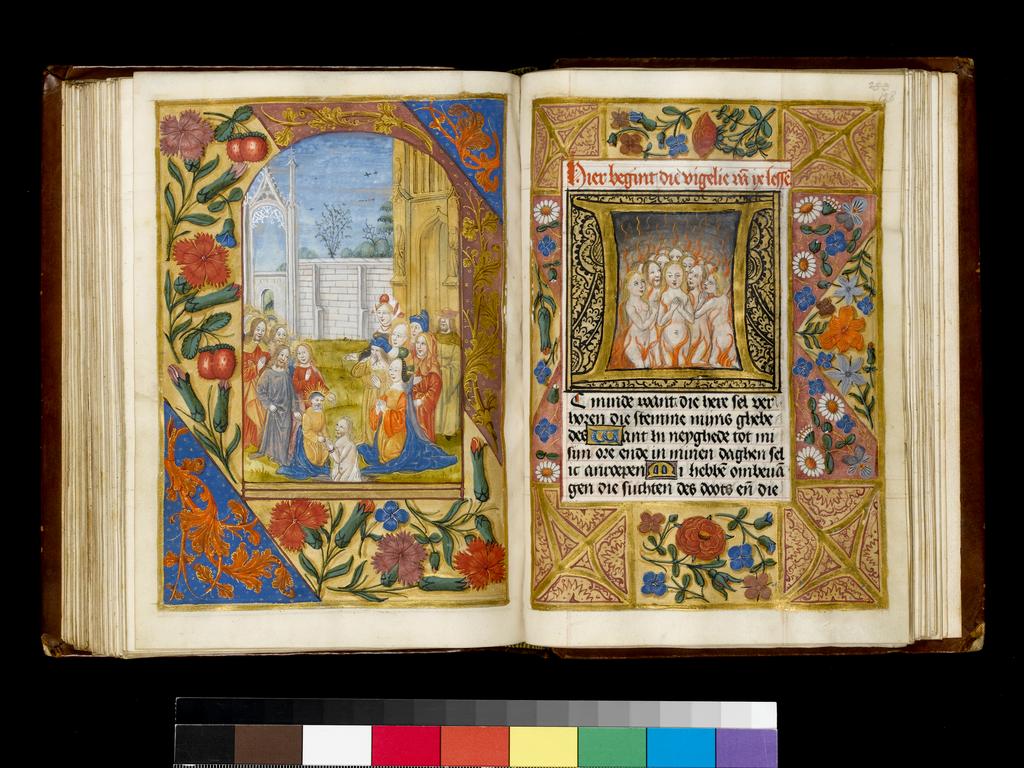 Hier begint die vigelie vā ix lessē
C minde want die here sel ver
horen die stemme mijns ghebe
des Want hi neyghede tot mi
sijn ore ende in minen daghen sel
ic anroepen Mi hebbē ombeuā
gen die suchten des doots eñ die